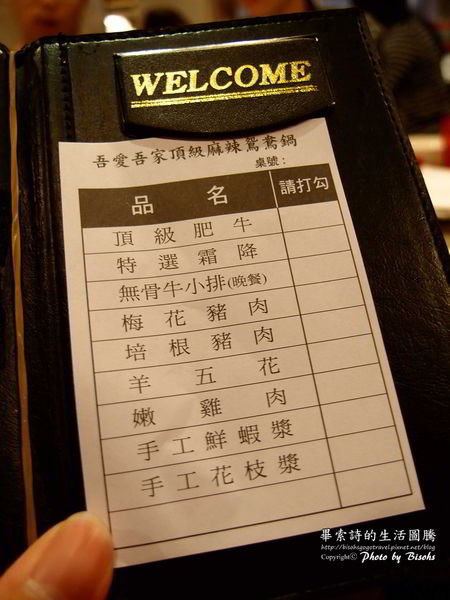 WELCOME
吾愛吾家頂級麻辣鴛鴦鍋
桌號：
品名 請打勾
頂級肥牛
特選霜降
無骨牛小排(晚餐)
梅花豬肉
培根豬肉
羊五花
嫩雞肉
手工鮮蝦漿
手工花枝漿
畢索詩的生活圖騰
http://bisohsgogotravel.pixnet.net/blog
Copyright© Photo by Bisohs